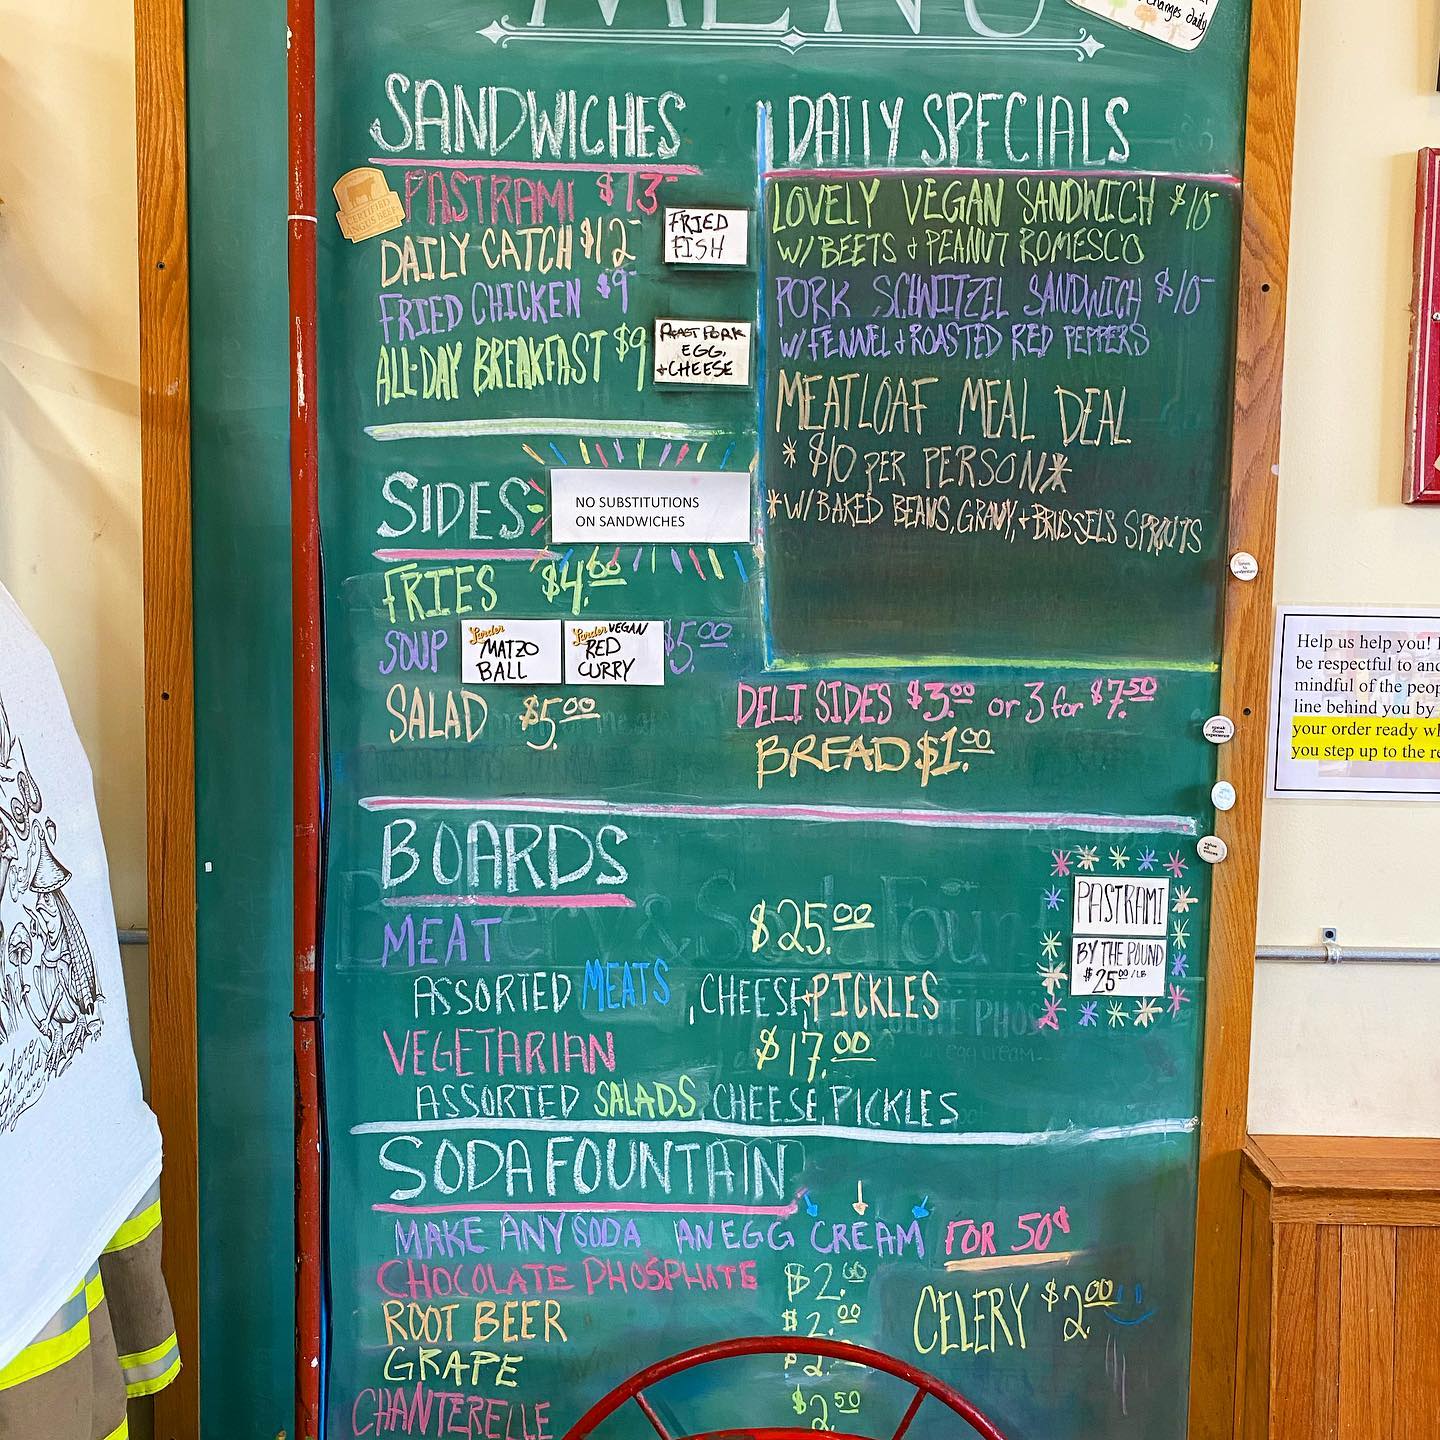 MENU
changes daily
SANDWICHES
PASTRAMI $13-
CERTIFIED
ANGUS BEEF
DAILY CATCH $12-
FRIED
FISH
FRIED CHICKEN $9-
ALL-DAY BREAKFAST $9
ROAST PORK
EGG,
+CHEESE
DAILY SPECIALS
LOVELY VEGAN SANDWICH $10-
W/ BEETS + PEANUT ROMESCO
PORK SCHNITZEL SANDWICH $10-
W/ FENNEL + ROASTED RED PEPPERS
MEATLOAF MEAL DEAL
* $10 PER PERSON*
*W/ BAKED BEANS, GRAVY, + BRUSSELS SPROUTS
SIDES
NO SUBSTITUTIONS
ON SANDWICHES
FRIES $4.00
SOUP
Larder
MATZO
BALL
Larder VEGAN
RED
CURRY
$5.00
SALAD $5.00
DELI SIDES $3.00 or 3 for $7.50
BREAD $1.00
BOARDS
MEAT $25.00
ASSORTED MEATS, CHEESE+PICKLES
VEGETARIAN $17.00
ASSORTED SALADS, CHEESE, PICKLES
PASTRAMI
BY THE POUND
$25.00/LB
SODA FOUNTAIN
MAKE ANY SODA AN EGG CREAM FOR 50¢
CHOCOLATE PHOSPHATE $2.00
ROOT BEER $2.00
GRAPE $2.
CHANTERELLE $2.50
CELERY $2.00
Help us help you!
be respectful to and
mindful of the
line behind you by
your order ready
you step up to the